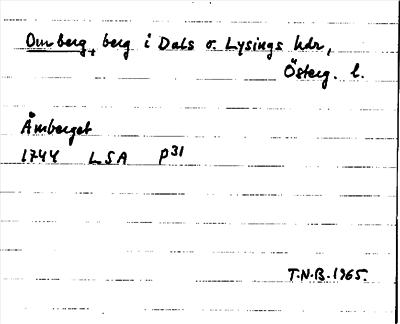 Omberg, berg i Dals o. Lysings hdr,
Österg. l.
Åmberget
1744 LSA P31
T.N.B. 1965.